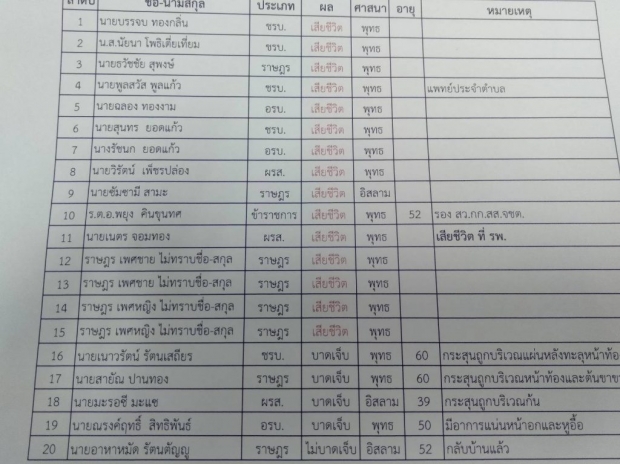 ลำดับ ชื่อ-นามสกุล ประเภท ผล ศาสนา อายุ หมายเหตุ
1 นายบรรจบ ทองกลิ่น ชรบ. เสียชีวิต พุทธ
2 น.ส.นัยนา โพธิเตี่ยเที่ยม ชรบ. เสียชีวิต พุทธ
3 นายธวัชชัย สุพงษ์ ราษฎร เสียชีวิต พุทธ
4 นายพูลสวัส พูลแก้ว ชรบ. เสียชีวิต พุทธ แพทย์ประจำตำบล
5 นายฉลอง ทองงาม อรบ. เสียชีวิต พุทธ
6 นายสุนทร ยอดแก้ว ชรบ. เสียชีวิต พุทธ
7 นางรัชนก ยอดแก้ว อรบ. เสียชีวิต พุทธ
8 นายวิรัตน์ เพ็ชรปล่อง ผรส. เสียชีวิต พุทธ
9 นายซัมซามี สามะ ราษฎร เสียชีวิต อิสลาม
10 ร.ต.อ.พยุง คินขุนทศ ข้าราชการ เสียชีวิต พุทธ 52 รอง สว.กก.สส.จชต.
11 นายเนตร จอมทอง ผรส. เสียชีวิต พุทธ เสียชีวิต ที่ รพ.
12 ราษฎร เพศชาย ไม่ทราบชื่อ-สกุล ราษฎร เสียชีวิต พุทธ
13 ราษฎร เพศชาย ไม่ทราบชื่อ-สกุล ราษฎร เสียชีวิต พุทธ
14 ราษฎร เพศหญิง ไม่ทราบชื่อ-สกุล ราษฎร เสียชีวิต พุทธ
15 ราษฎร เพศหญิง ไม่ทราบชื่อ-สกุล ราษฎร เสียชีวิต พุทธ
16 นายเนาวรัตน์ รัตนเสถียร ชรบ. บาดเจ็บ พุทธ 60 กระสุนถูกบริเวณแผ่นหลังทะลุหน้าท้อ
17 นายสายัณ ปานทอง ราษฎร บาดเจ็บ พุทธ 60 กระสุนถูกบริเวณหน้าท้องและต้นขาขา
18 นายมะรอซี มะแซ ผรส. บาดเจ็บ อิสลาม 39 กระสุนถูกบริเวณก้น
19 นายณรงค์ฤทธิ์ สิทธิพันธ์ อรบ. บาดเจ็บ พุทธ 50 มีอาการแน่นหน้าอกและหูอื้อ
20 นายอาหาหมัด รัตนตัญญู ราษฎร ไม่บาดเจ็บ อิสลาม 52 กลับบ้านแล้ว